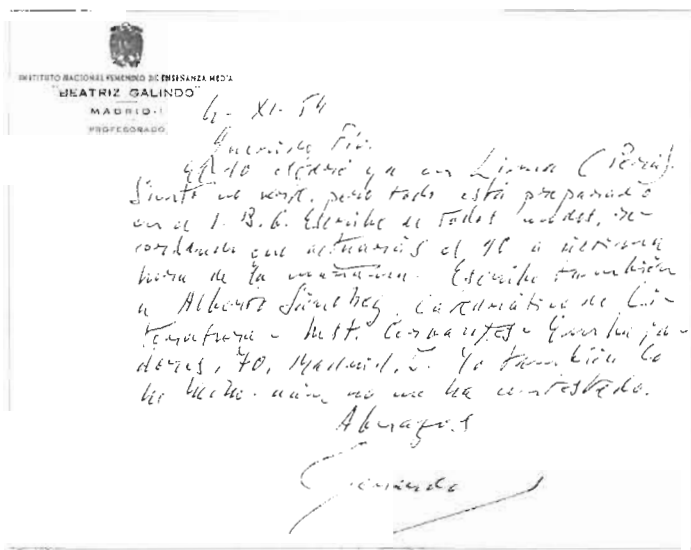 INSTITUTO NACIONAL FEMENINO DE ENSEÑANZA MEDIA
"BEATRIZ GALINDO"
MADRID-1
PROFESORADO
4- XI- 54
Querido
El 10 estaré ya en Lima (Perú).
Siento no verte, pero todo está preparado
en el I. B. G. Escribe de todos modos, re-
cordando que actuarás el 10 a
hora de la mañana. Escribe también
a Alberto Sánchez, Catedrático de Li-
teratura - Inst. Cervantes - Embaja-
dores, 70, Madrid, 5. Yo también lo
he hecho. aún no me ha contestado.
Abrazos
Gerardo